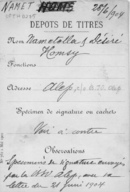 NAMET HOMSY 28/6/1904
DÉPÔTS DE TITRES
Nom Nametalla & Désiré
Homsy
Fonctions
Adresse Alep
Spécimen de signature ou cachets
Voir ci contre
Observations
Spécimens de signature envoyés
par le
lettre du 21 juin 1904